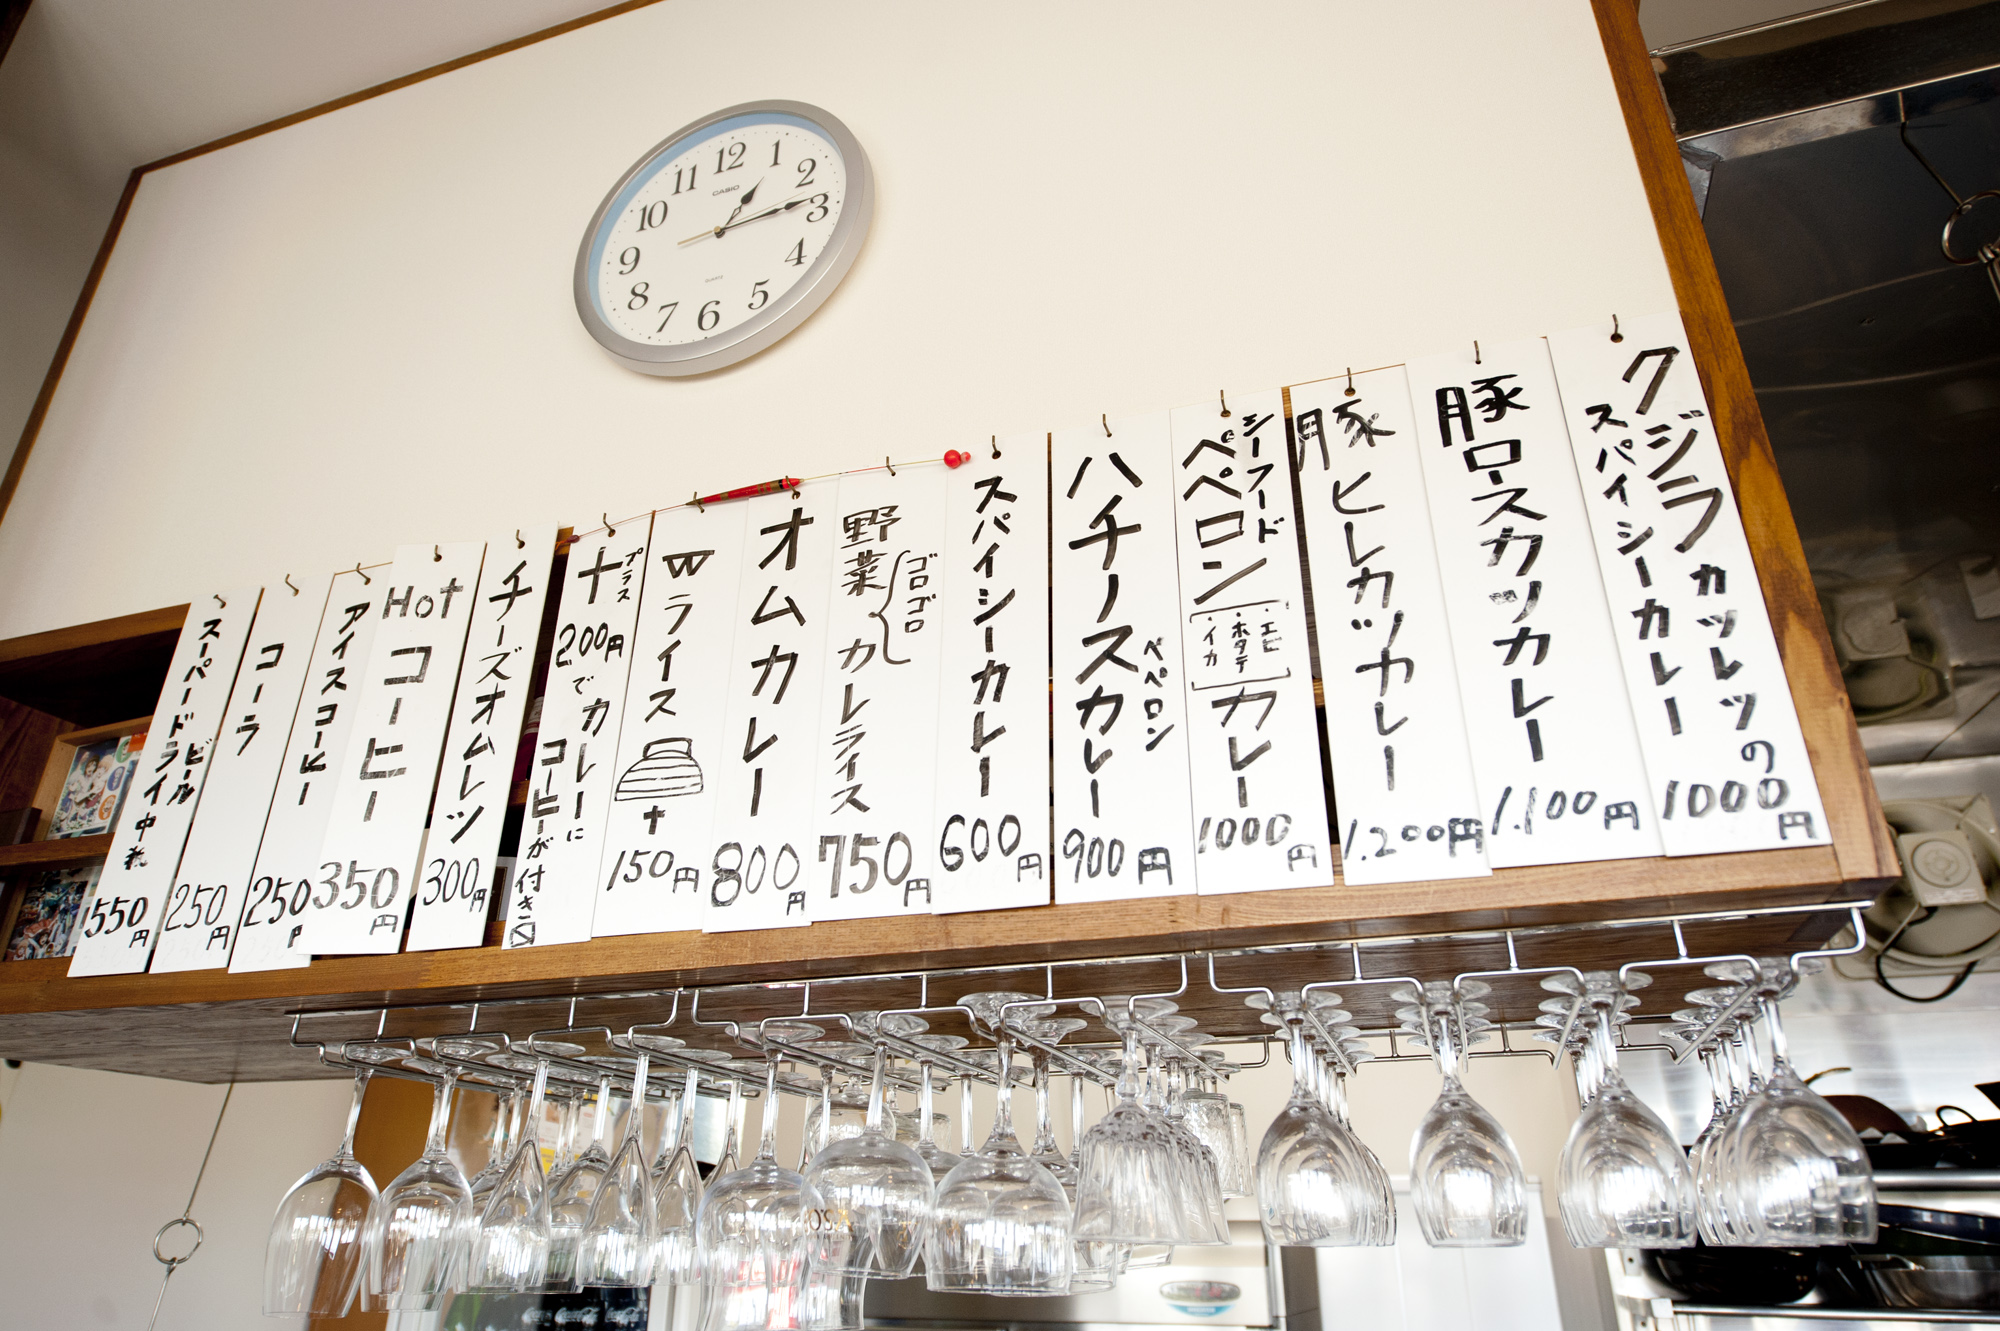 CASIO
12
1
2
3
4
5
6
7
8
9
10
11
QUARTZ
クジラカツレツの
スパイシーカレー
1000円
豚ロースカツカレー
1.100円
豚ヒレカツカレー
1.200円
シーフード
ペペロン
・エビ
・ホタテ
・イカ
カレー
1000円
ハチノスカレー
ペペロン
900円
スパイシーカレー
600円
野菜
ゴロゴロ
カレーライス
750円
オムカレー
800円
Wライス
+
150円
プラス
+
200円でカレーに
コーヒーが付き
チーズオムレツ
300円
Hot
コーヒー
350円
アイスコーヒー
250円
コーラ
250円
ビール
スーパードライ中瓶
550円